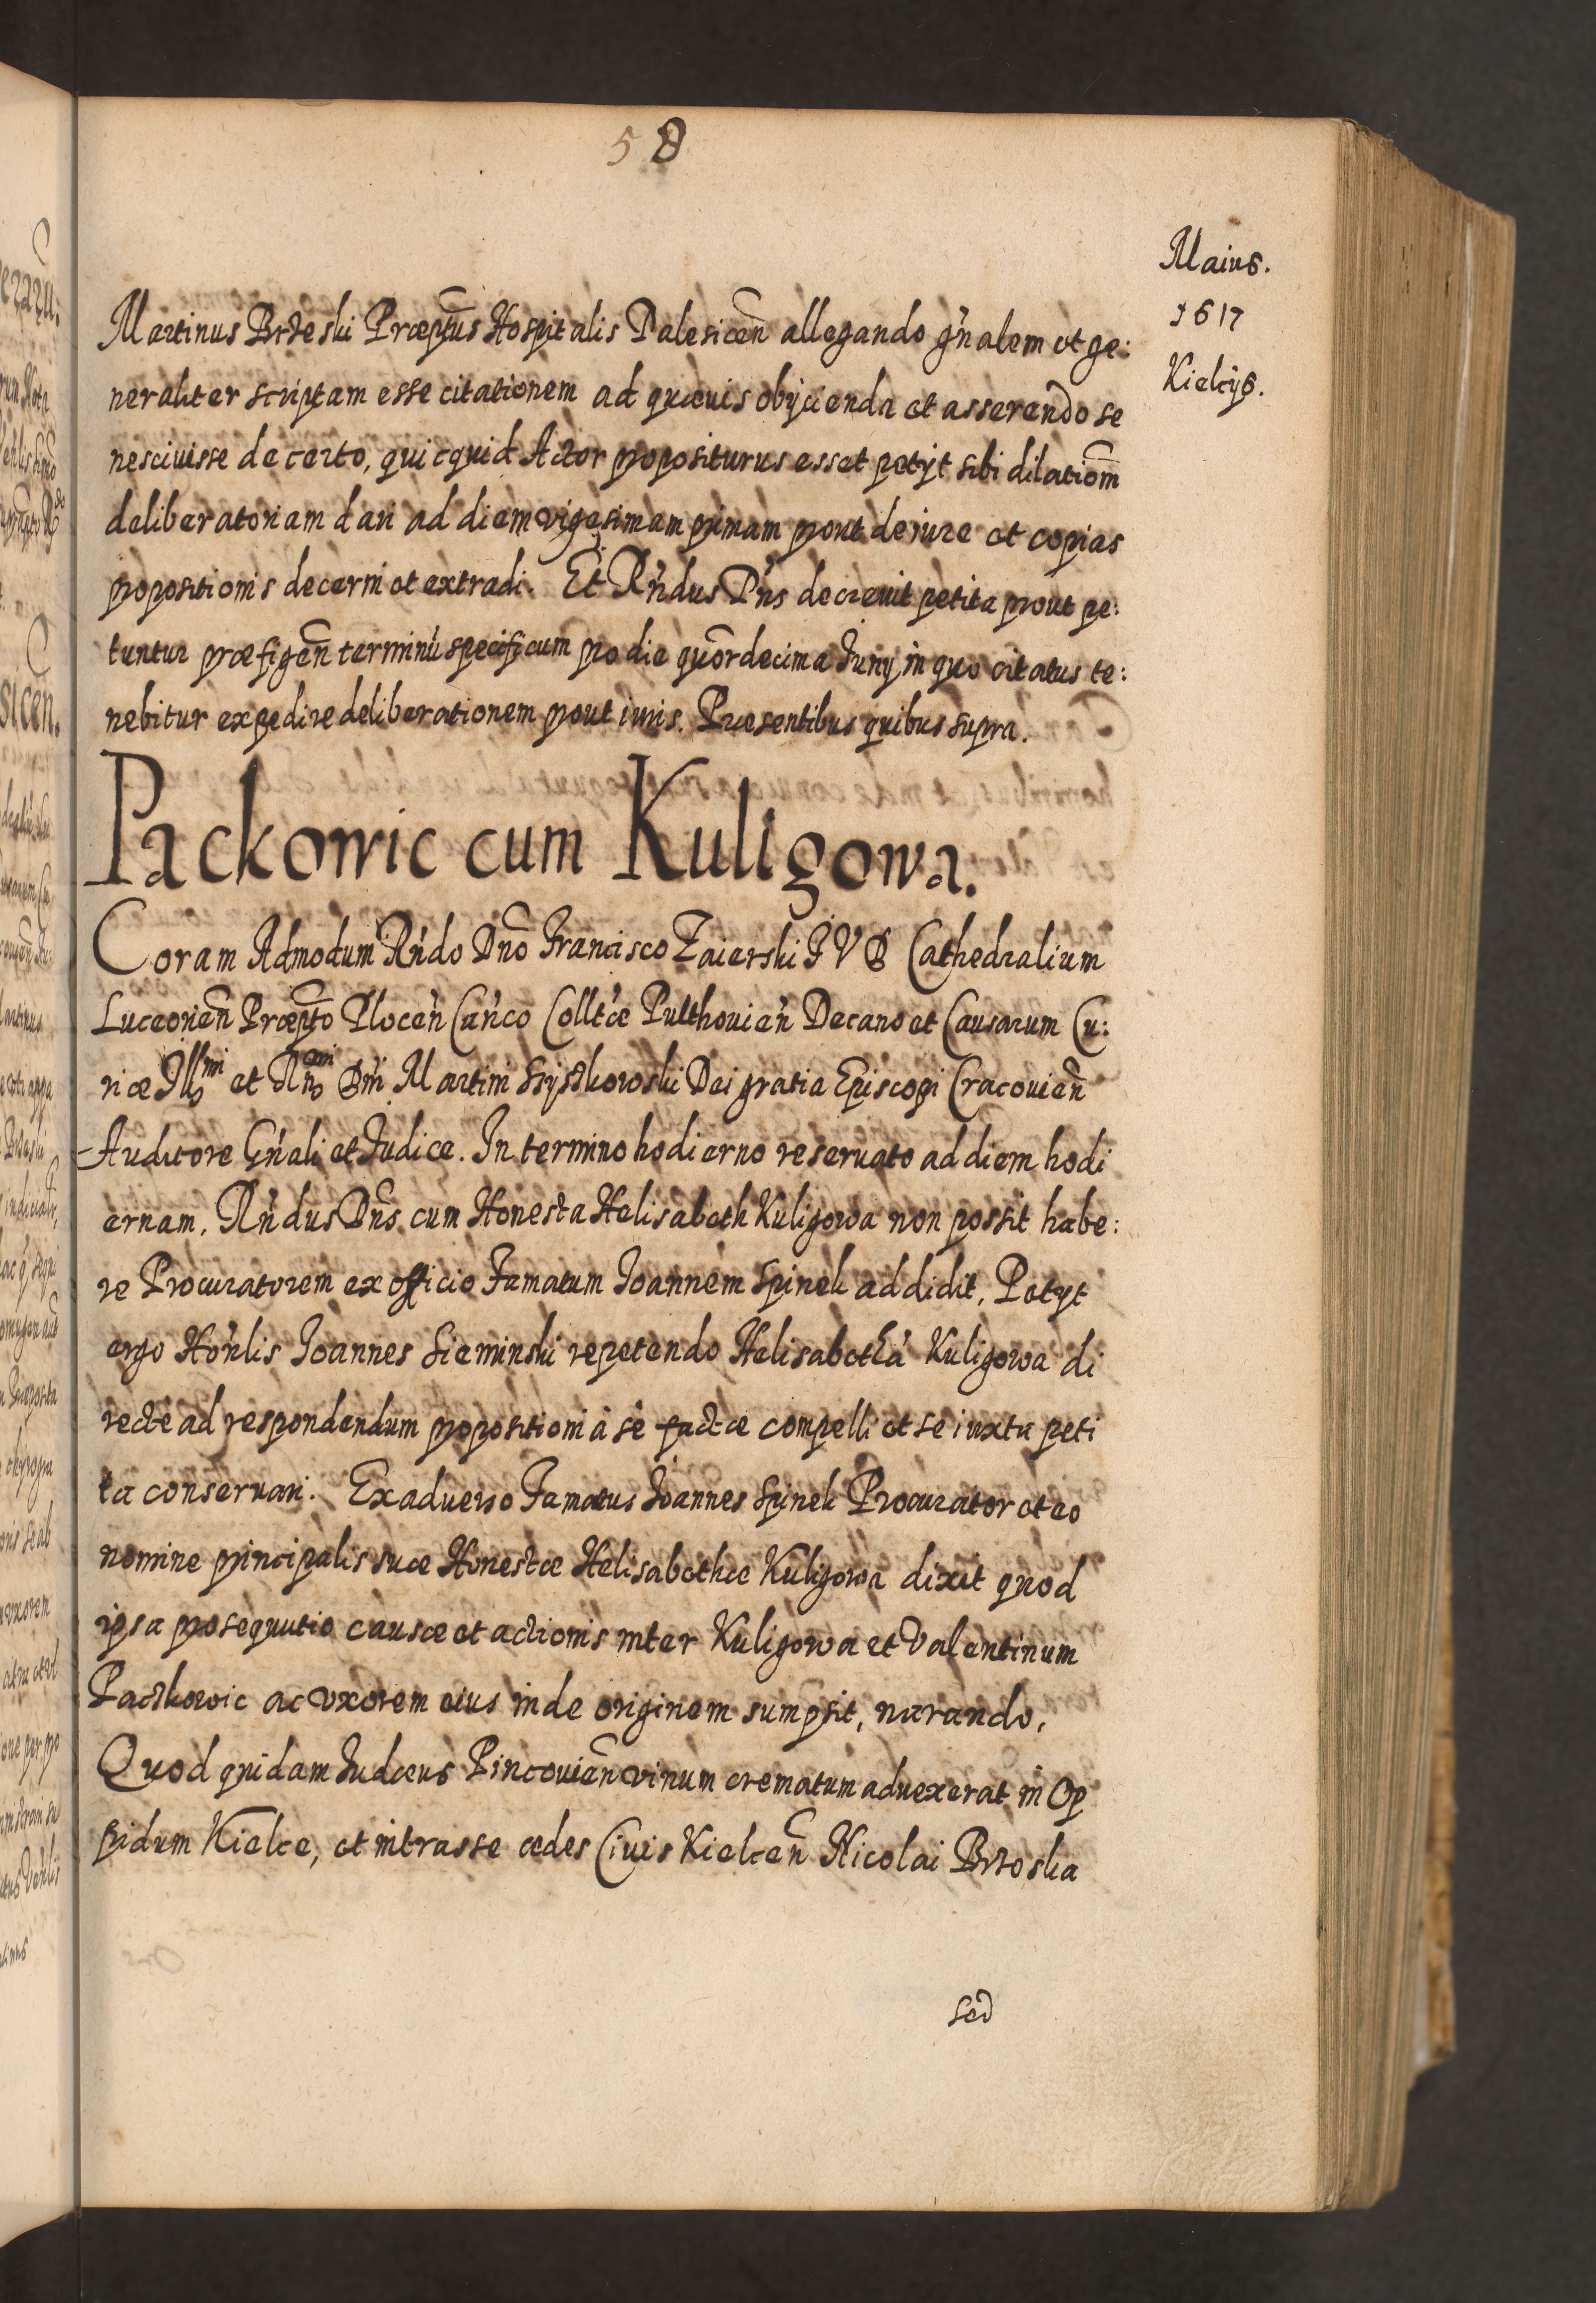 58
Maius.
1617
Kielcijs.
Martinus Brzeski Præptūs Hospitalis Dalesiceñ allegando gñalem et ge:
neraliter scriptam esse citationem ad quævis obijcienda et asserendo se
nescivisse de certo, quicquid Actor propositurus esset petijt sibi dilatiõm
deliberatoriam dari ad diem vigesimam primam prout de iure et copias
propositionis decerni et extradi. Et Rñdus Dñs decrevit petita prout pe:
tuntur præfigeñ terminũ specificum pro die quõrdecima Iunij in quo citatus te:
nebitur expedire deliberationem prout iuris. Præsentibus quibus supra.
Packowic cum Kuligowa.
Coram Admodum Rñdo Dño Francisco Zaierski I V D Cathedralium
Luceorieñ Præpto Ploceñ Cañco Colltæ Pulthovieñ Decano et Causarum Cu:
riæ Illmi et Rmi Dñi Martini Szyszkowski Dei gratia Episcopi Cracovieñ
Auditore Gñali et Iudice. In termino hodierno reservato ad diem hodi
ernam. Rñdus Dñs cum Honesta Helisabeth Kuligowa non possit habe:
re Procuratorem ex officio Famatum Ioannem Spinek addidit. Petyt
ergo Hoñlis Ioannes Sieminski repetendo Helisabethã Kuligowa di
recte ad respondendum propositioni à se factæ compelli et se iuxta peti
ta conservari. Ex adverso Famatus Ioannes Spinek Procurator et eo
nomine principalis suæ Honestæ Helisabethæ Kuligowa dixit quod
ipsa prosequutio causæ et actionis inter Kuligowa et Valentinum
Paczkowic ac vxorem eius inde originem sumpsit, narando,
Quod quidam Iudæus Pincovieñ vinum crematum aduexerat in Op
pidum Kielce, et intrasse ædes Civis Kielceñ Nicolai Brzoska
sed